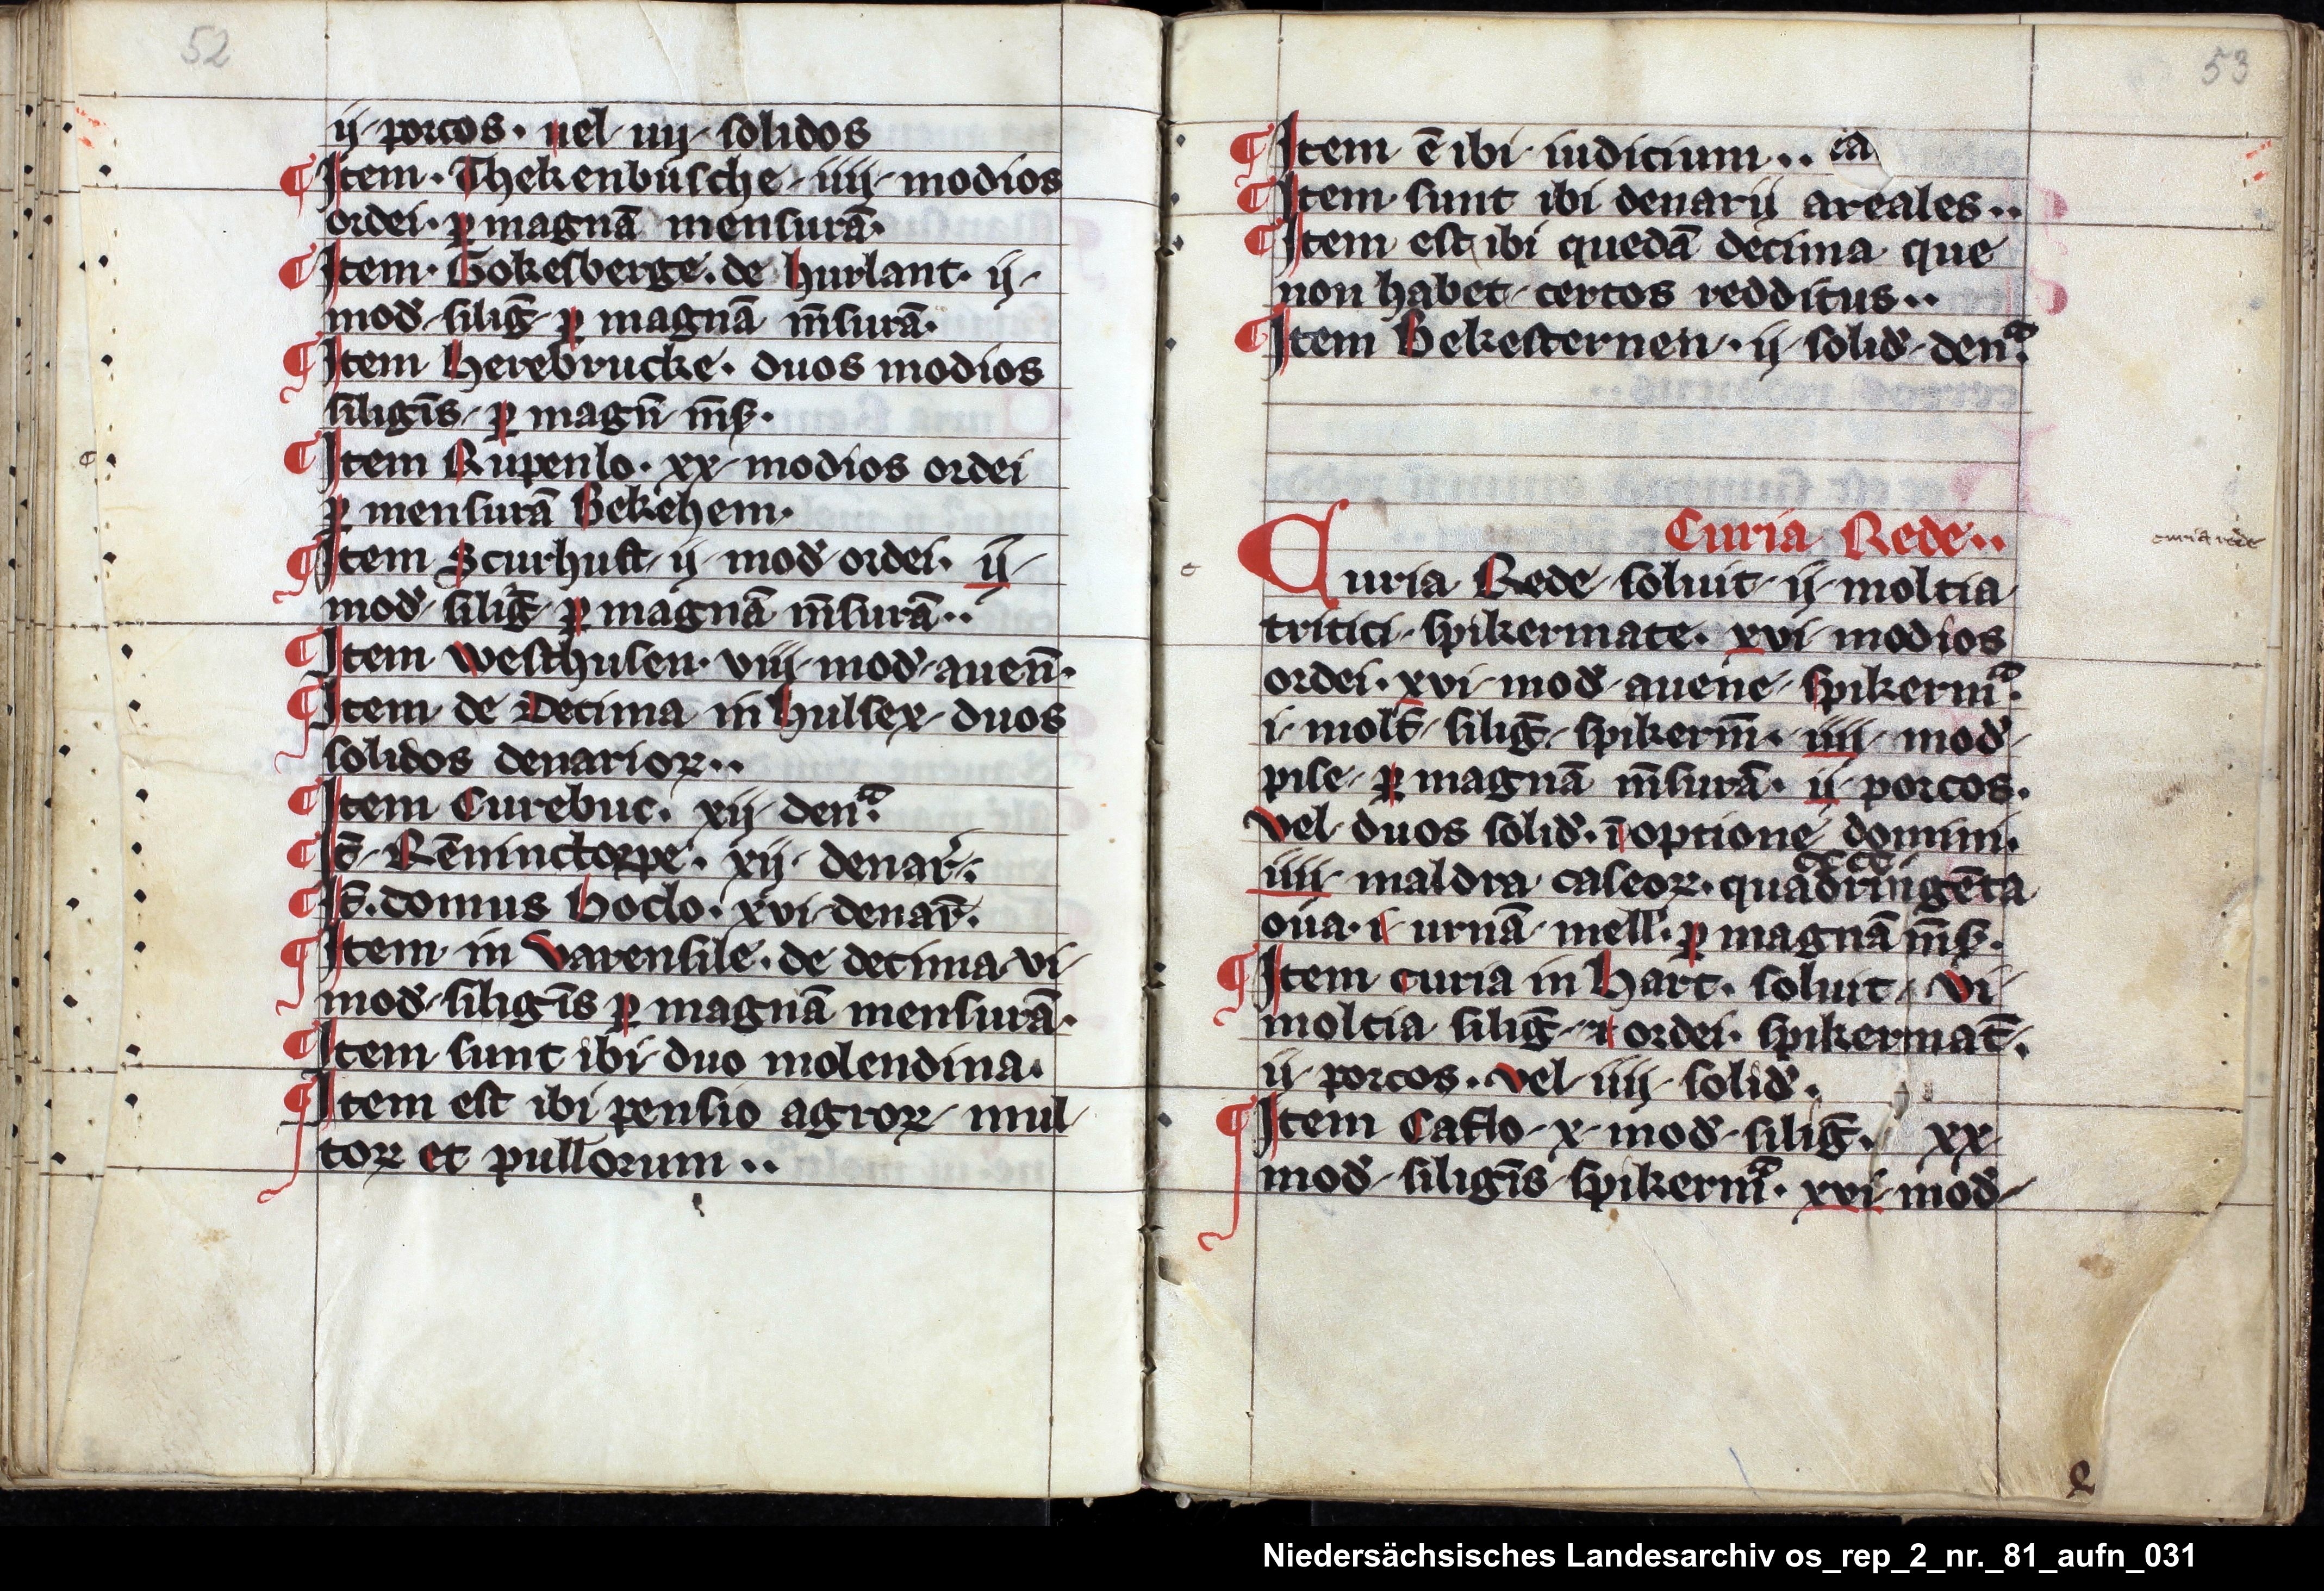 52
ij porcos · uel iiij solidos
¶ Item · Thekenbusche iiij modios
ordei · ꝑ magnā mensurā ·
¶ Item · Gokesberge · de hurlant · ij
mod̄ siliḡ ꝑ magnā m̄surā ·
¶ Item herebrucke · duos modios
siligīs ꝑ magn̄ m̄s ·
¶ Item Rupenlo · xx modios ordei
ꝑ mensurā Bekehem ·
¶ Item Scurhust ij mod̄ ordei · ij
mod̄ siliḡ ꝑ magnā m̄surā ··
¶ Item westhusen · viij mod̄ auen̄ ·
¶ Item de Decima in hulsex duos
solidos denarioꝝ ··
¶ Item Curebuc · xij denᷓ ·
¶ It̄ Rēninctorpe · xij denar̄ ·
¶ It̄ · domus hoclo · xvi denar̄ ·
¶ Item in varensile · de decima vi
mod̄ siligīs ꝑ magnā mensurā ·
¶ Item sunt ibi duo molendina ·
¶ Item est ibi pensio agroꝝ mul
toꝝ et pullorum ··
53
¶ Item ē ibi iudicium ·· ia
¶ Item sunt ibi denarij areales ··
¶ Item est ibi quedā decima que
non habet certos redditus ··
¶ Item Bekesternen · ij solid̄ denᷓ ·
Curia Rede ··
curia rede
Curia Rede soluit ij moltia
tritici spikermate · xvi modios
ordei · xvi mod̄ auene spikermᷓ ·
i molt̄ siliḡ spikerm̄ · iiij mod̄
pise ꝑ magnā m̄surā · ij porcos ·
vel duos solid̄ · ī optione domini ·
cccc
iiij maldra caseoꝝ · quadringēta
oua · i urnā mell̄ · ꝑ magnā m̄s ·
¶ Item curia in hart · soluit vi
moltia siliḡ ⁊ ordei · spikermat̄ ·
ij porcos · vel iiij solid̄ ·
¶ Item Caflo x mod̄ siliḡ · xx
mod̄ siligīs spikermᷓ · xvi mod̄
Niedersächsisches Landesarchiv os_rep_2_nr._81_aufn_031